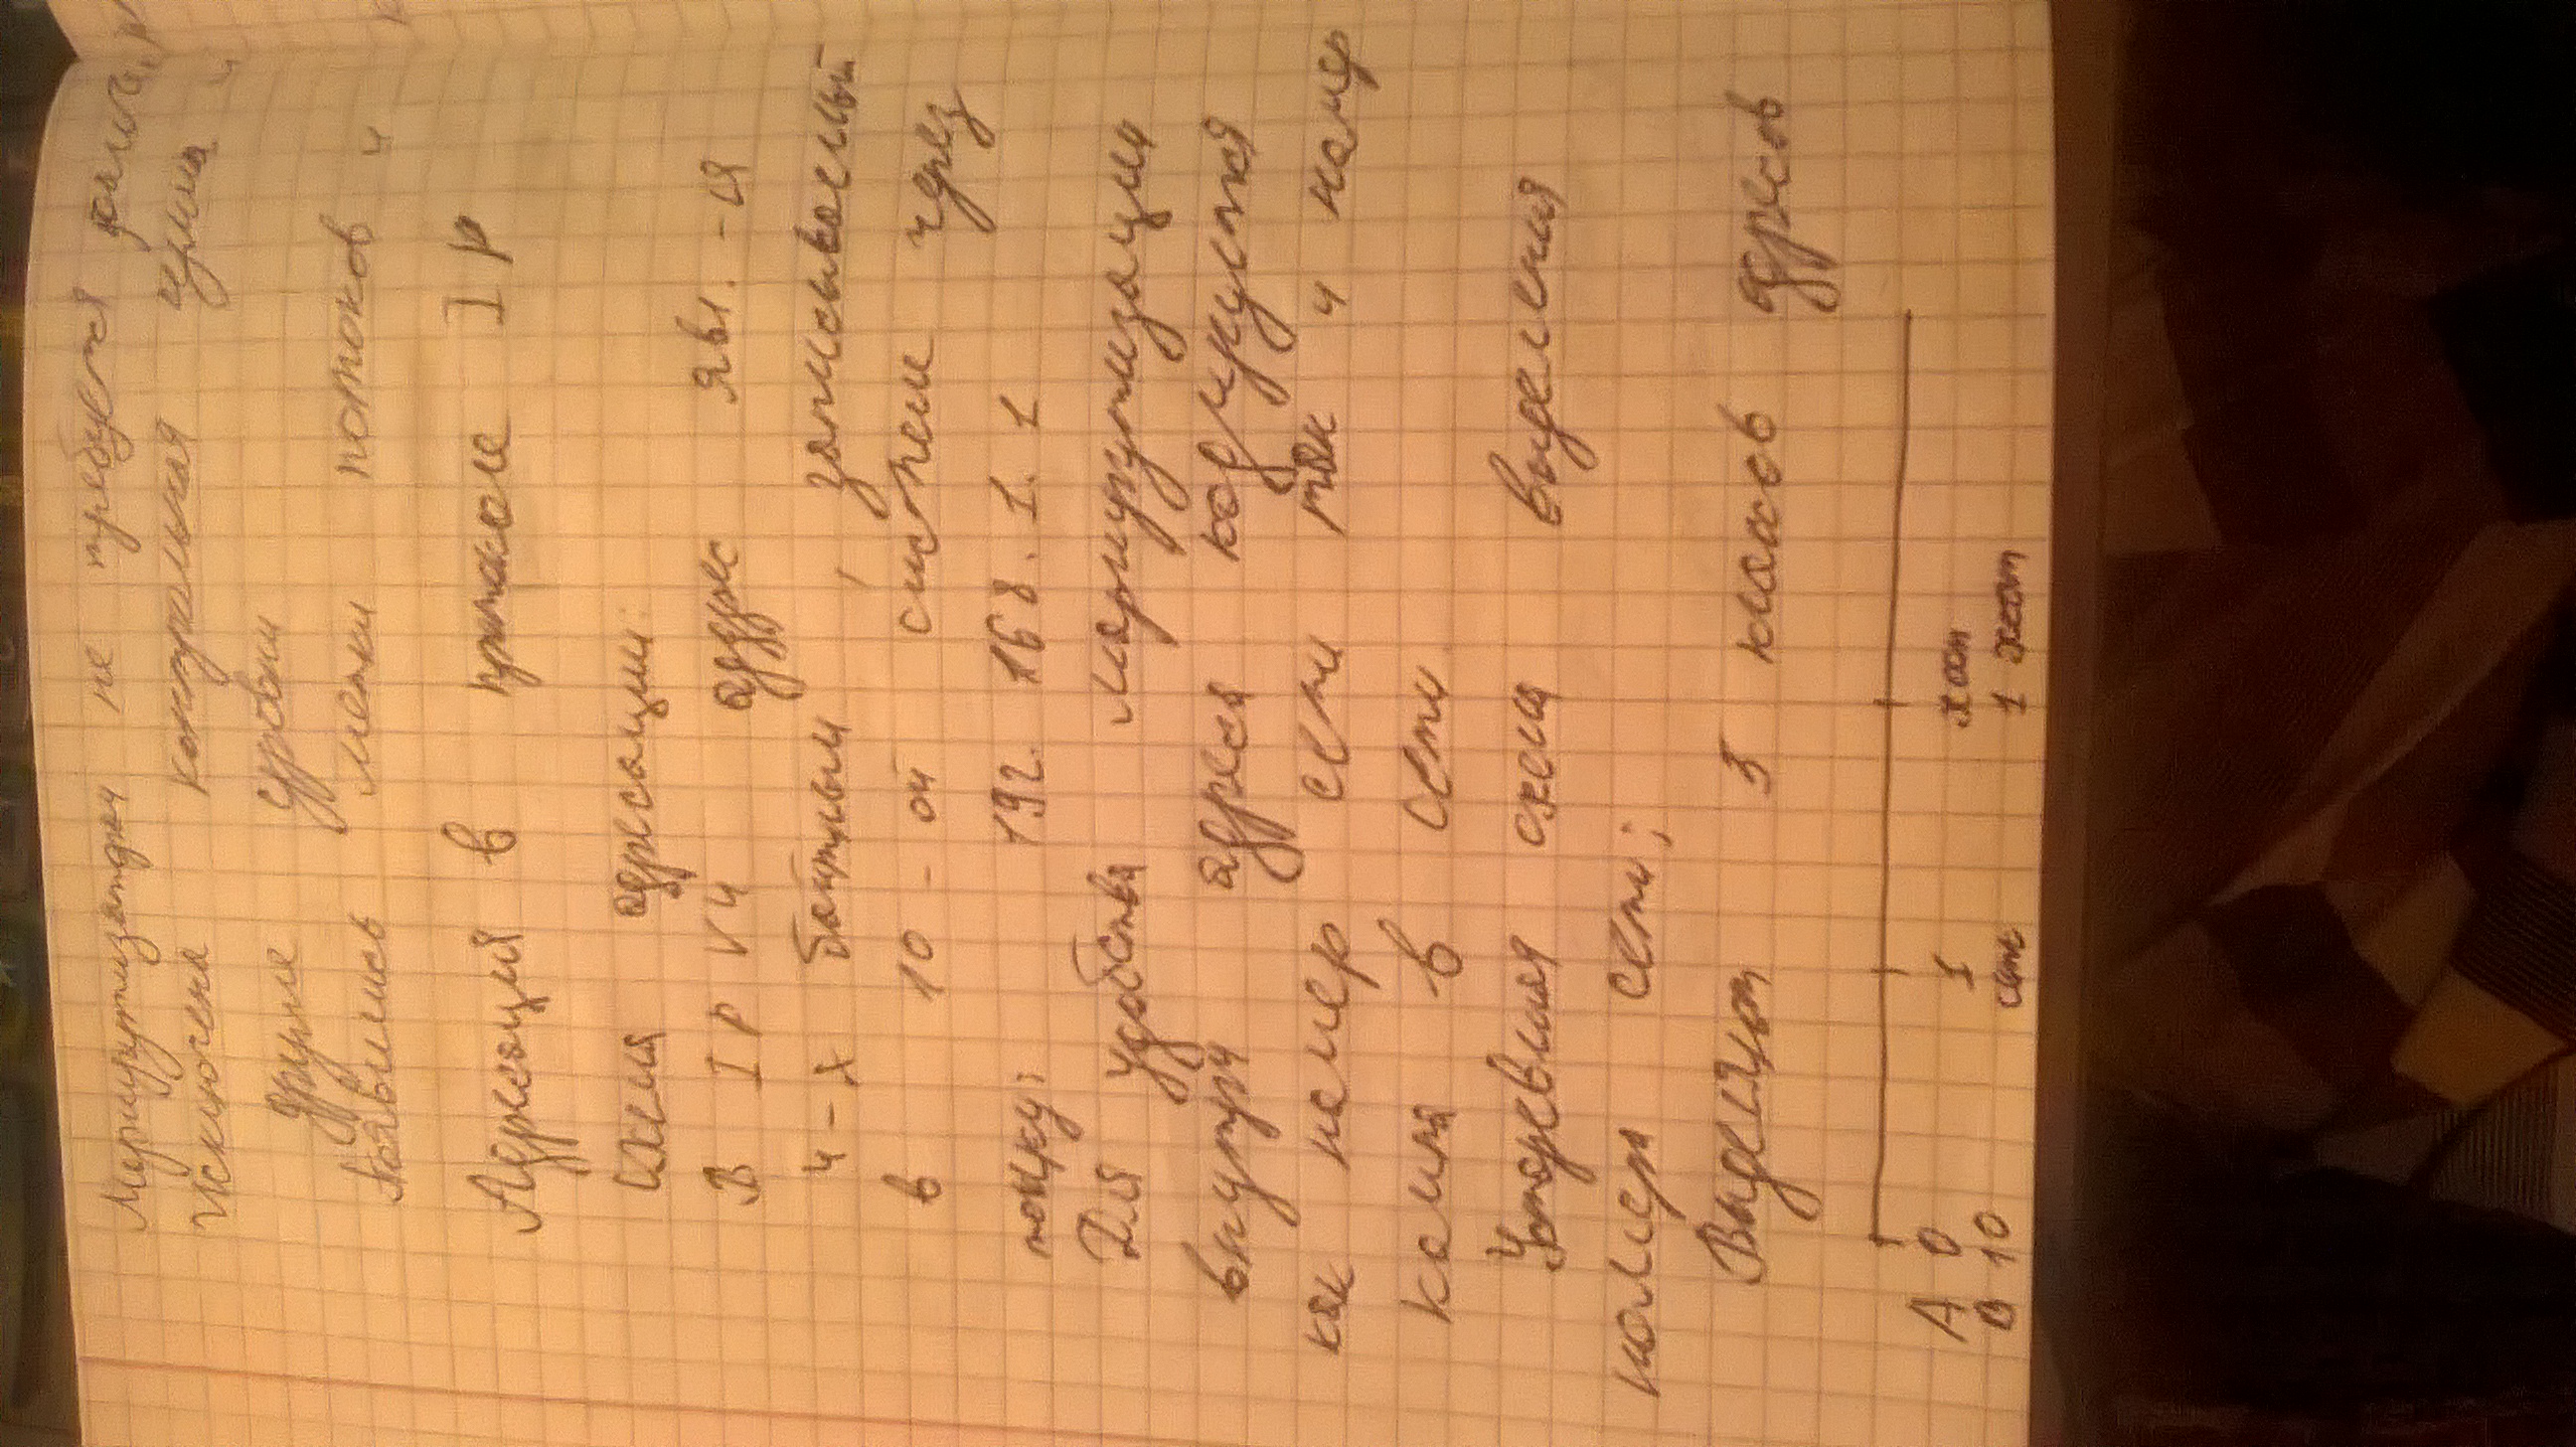 Маршрутизаторам не требуется
Исключена контрольная сумма
другие уровни
Появились метки потоков и
Адресация в протоколе IP
Схема адресации:
В IP V4 аддрес явл.-ся
4-х байтным, записываемый
в 10-ой системе через
точку: 192.168.1.1
Для удобства маршрутизации
внутри адреса кодируется
как номер сети так и номер
компа в сети
Устаревшая схема выделения
номера сети;
Выделяют 5 классов адресов
A 0 1 хост
B 10 сеть 1 хост